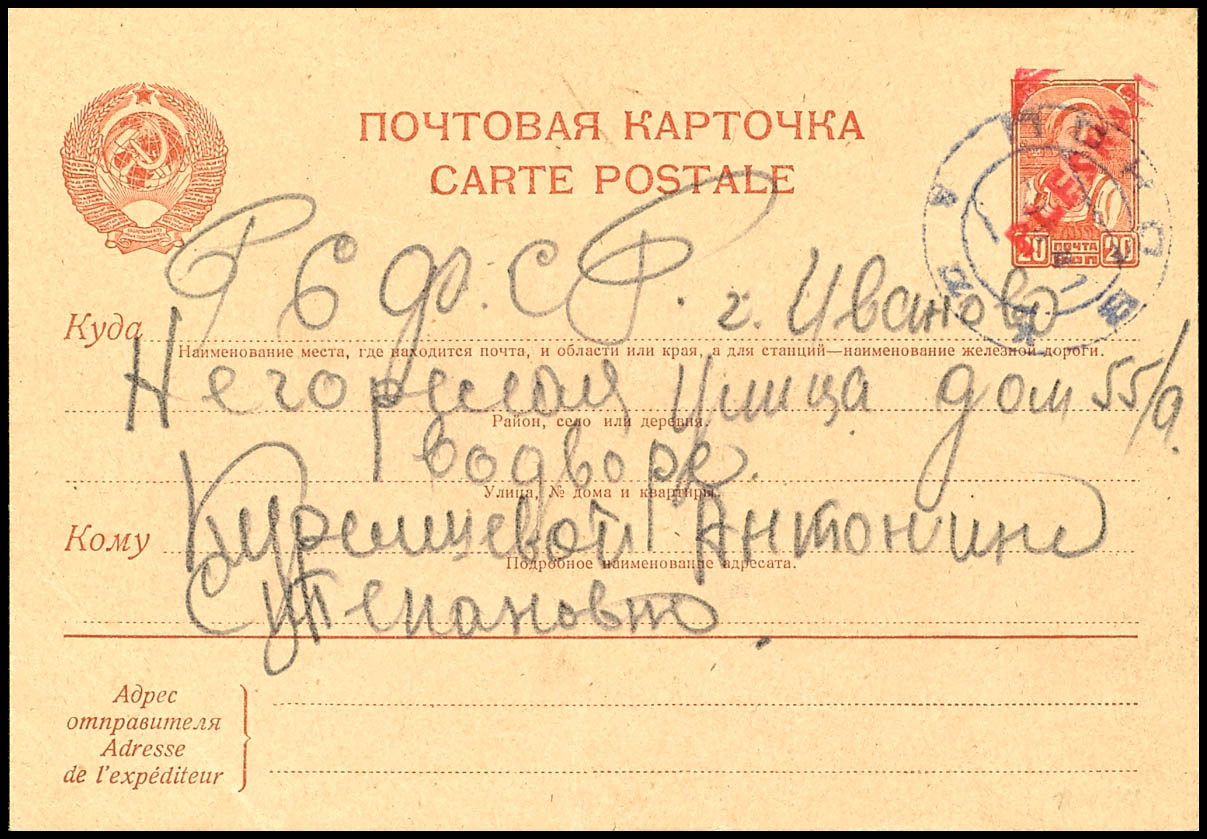 ПОЧТОВАЯ КАРТОЧКА
CARTE POSTALE
20 ПОЧТА 20
Р С Ф. С Р. г. Иваново
Куда
Наименование места, где находится почта, и области или края, а для станций—наименование железной дороги.
Улица дом 55/а
Район, село или деревня.
водворе.
Улица, № дома и квартиры.
Кому Антонине
Подробное наименование адресата.
Степановно.
Адрес
отправителя
Adresse
de l'expéditeur